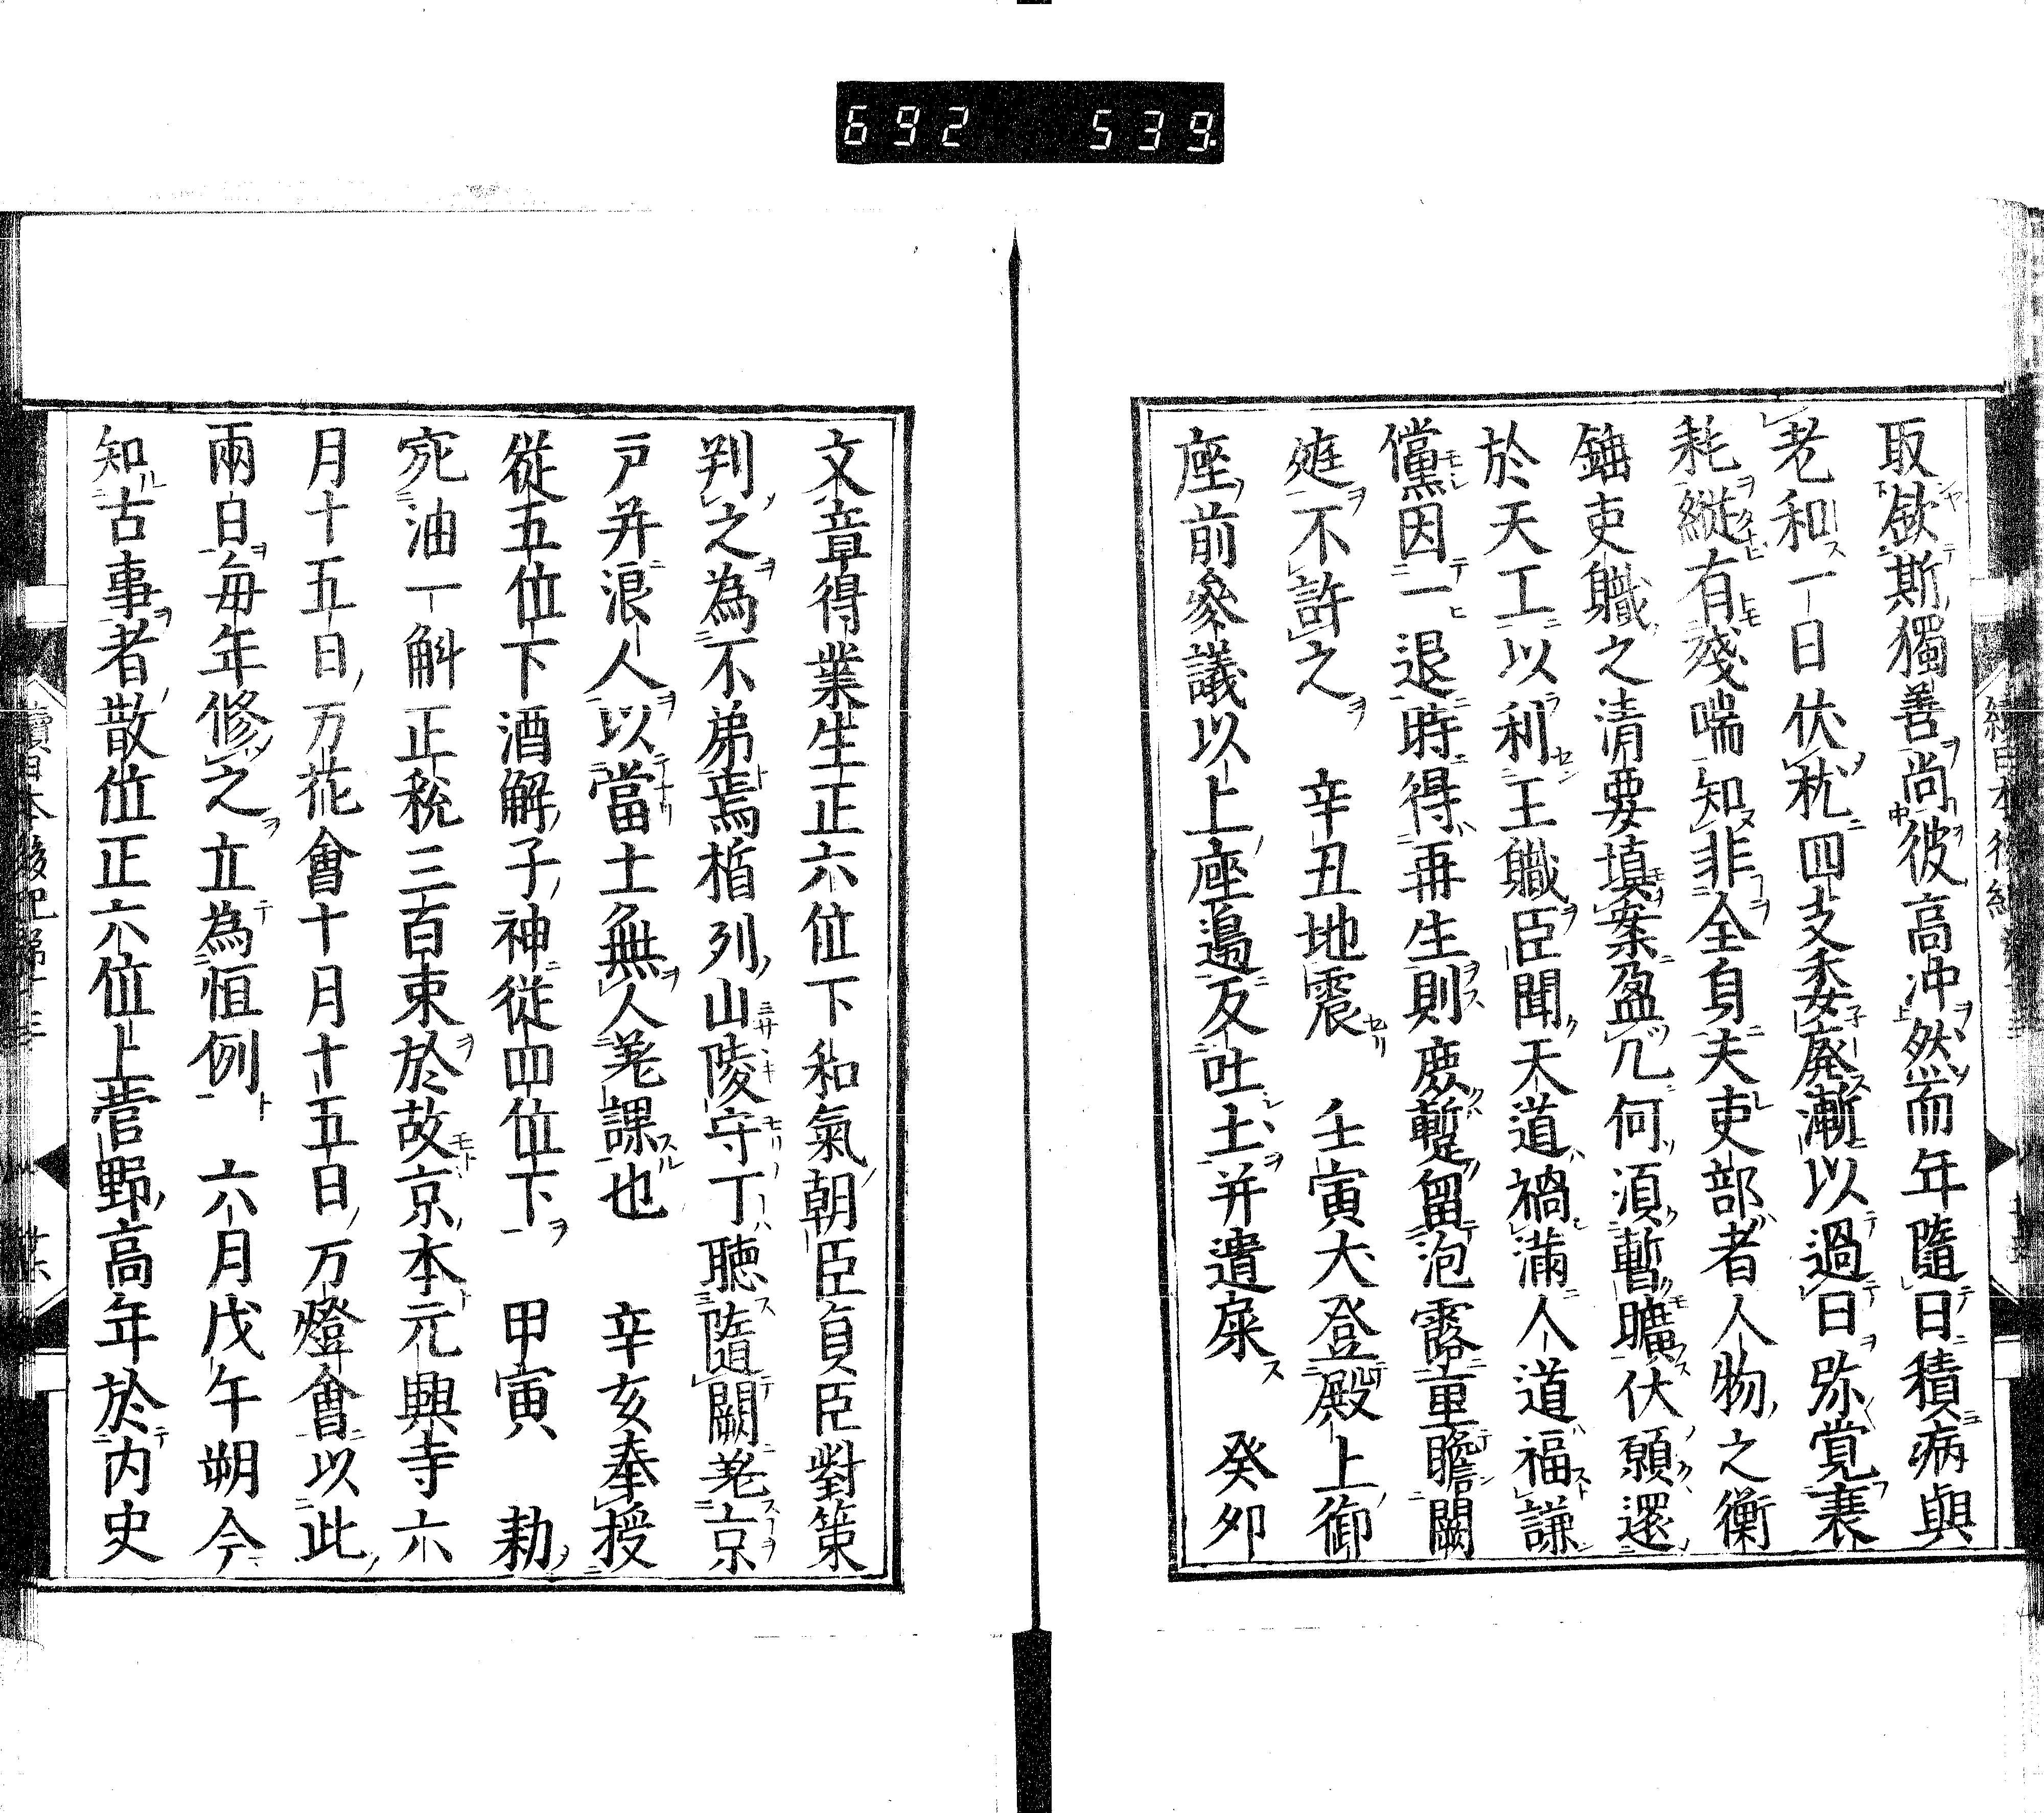 692 539
取歛斯獨善尚彼高冲然而年隨日積病與
老和一日伏枕四支委廃漸以過日弥覚衰
耗縱有殘喘知非全身夫吏部者人物之衡
錘吏職之清要填案盈几何湏暫曠伏願還
於天工以利王職臣聞天道禍満人道福謙
儻因一退時得再生則慶蹔留泡露重瞻闕
庭不許之 辛丑地震 壬寅犬登殿上御
座前參議以上座邉反吐土并遺屎 癸夘
文章得業生正六位下和氣朝臣貞臣對策
判之為不弟焉楯列山陵守丁聴隨闕差京
戸并浪人以當土無人差課也 辛亥奉授
從五位下酒解子神從四位下 甲寅 勅
宛油一斛正税三百束於故京本元興寺六
月十五日万花會十月十五日万燈會以此
兩日毎年修之立為恒例 六月戊午朔今
知古事者散位正六位上菅野高年於内史
續日本後紀第十三 廿六